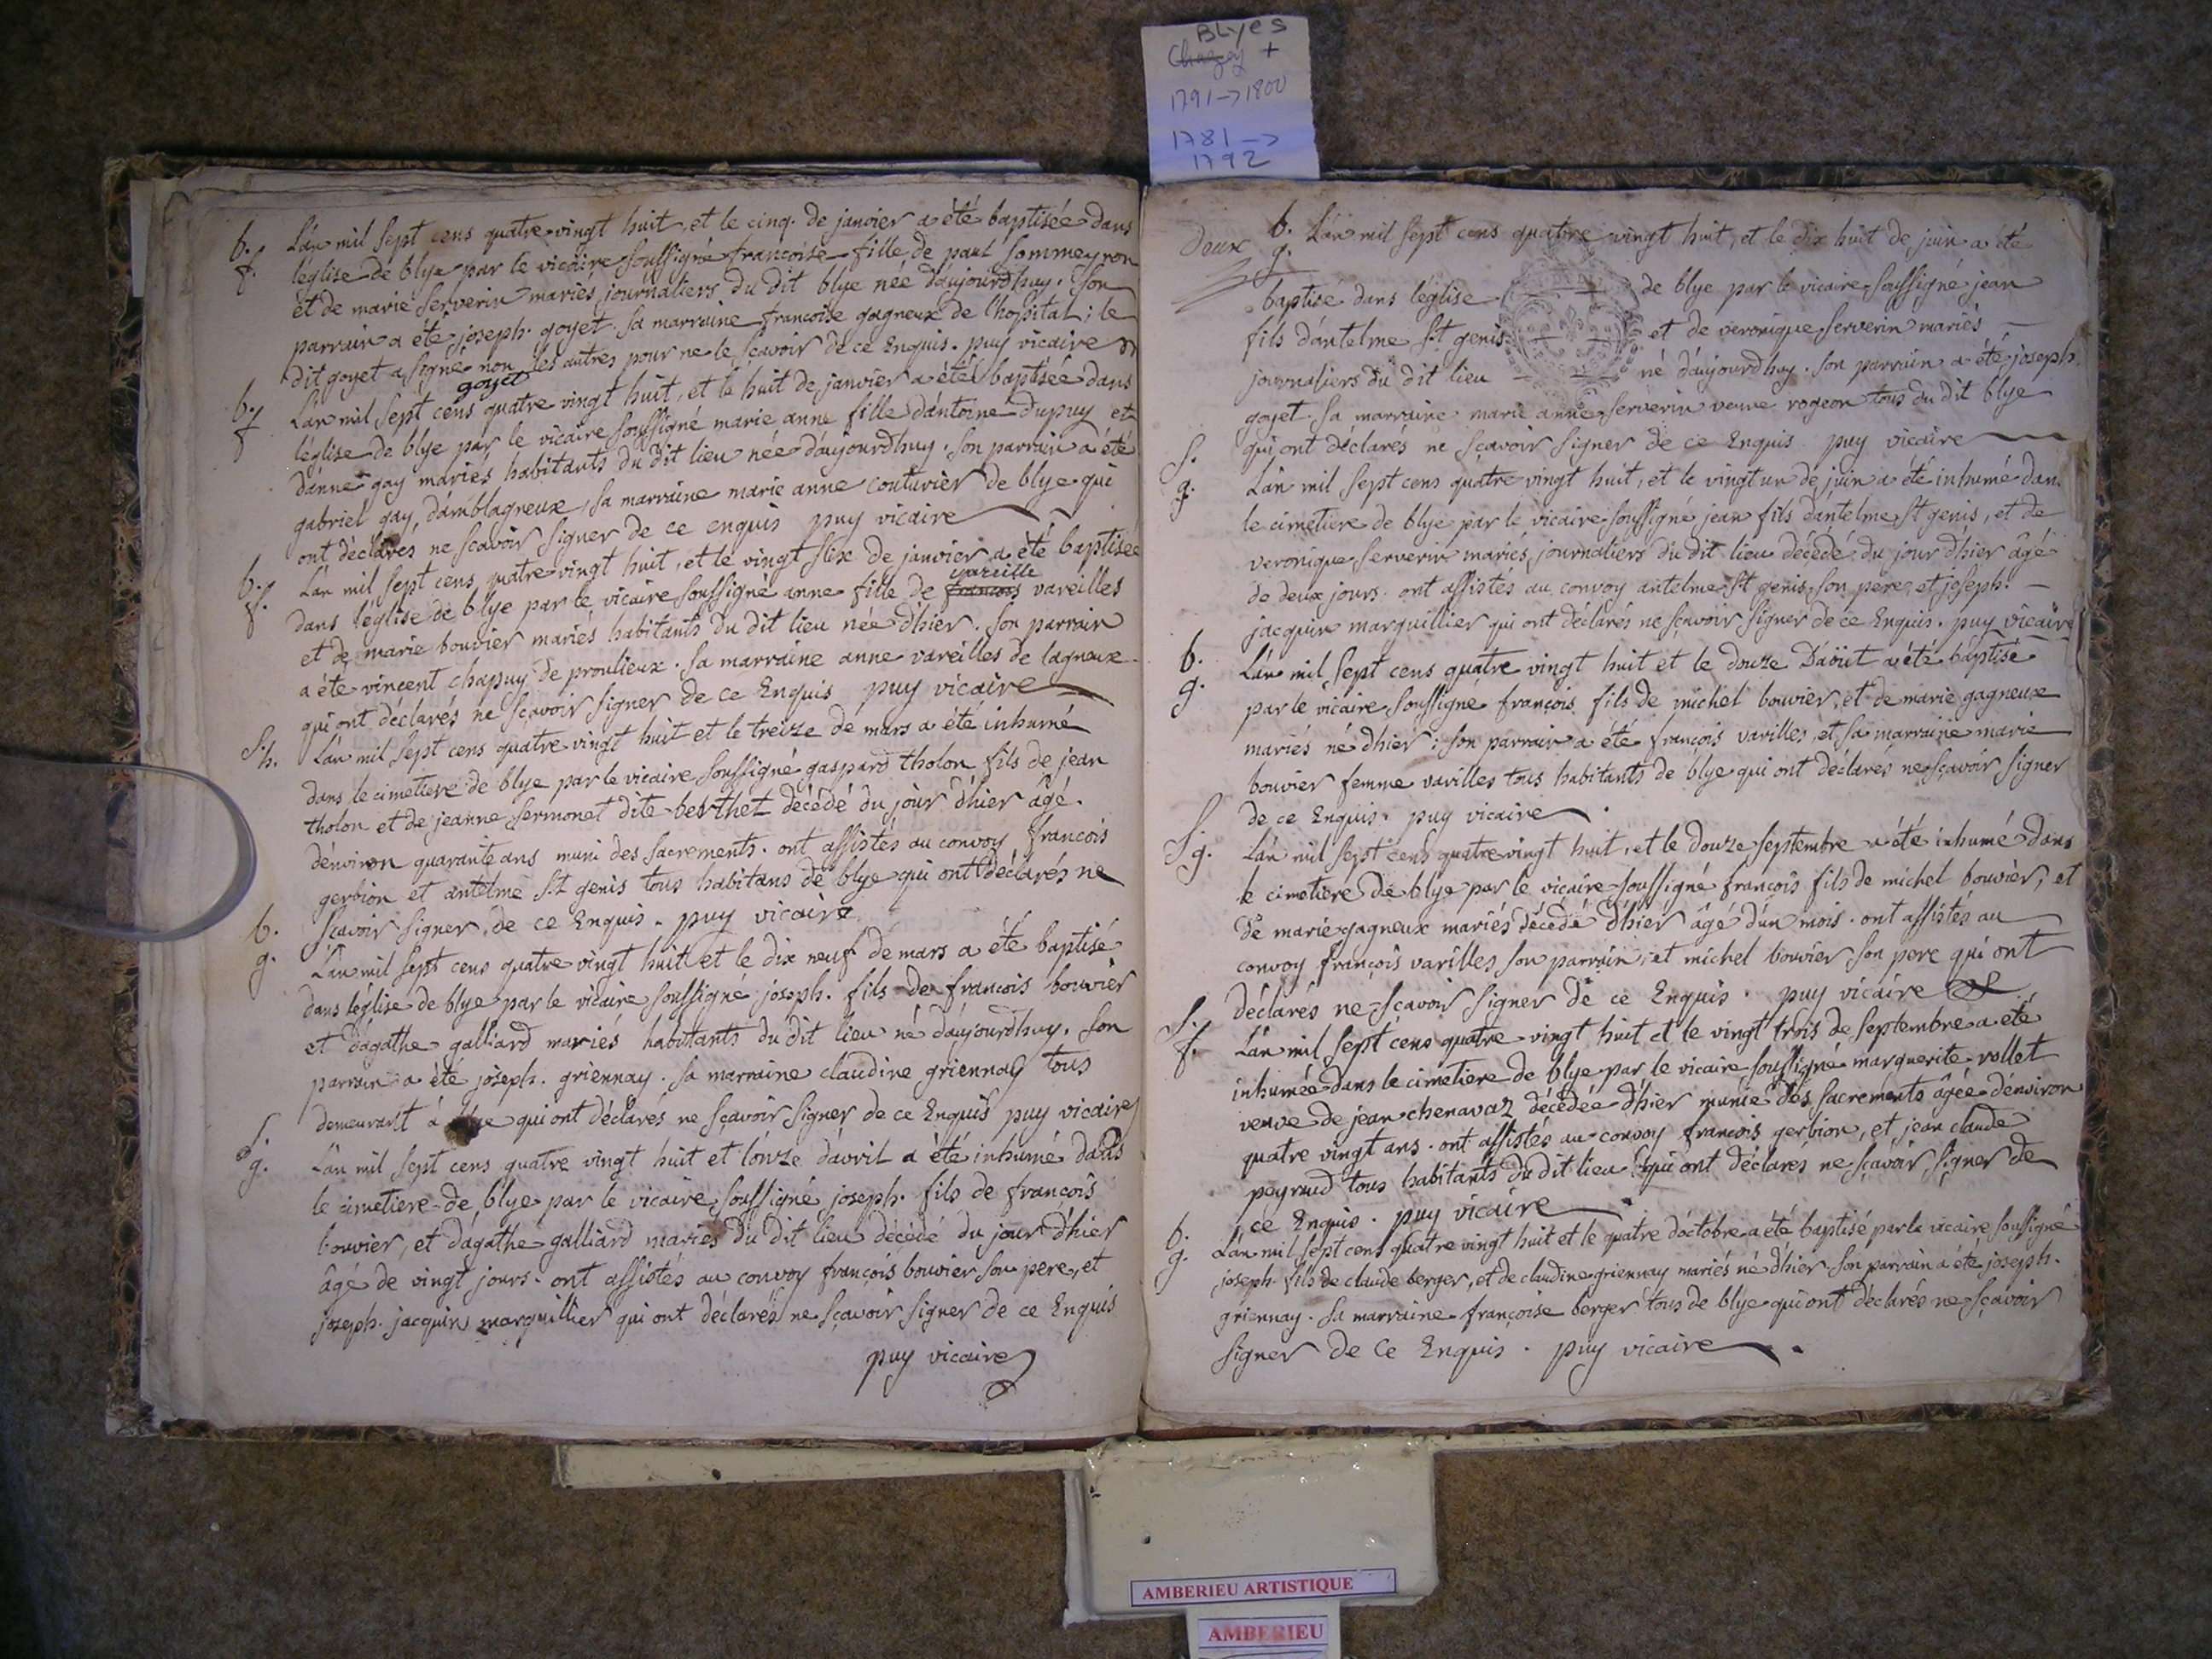 BLyes
Chazey +
1791 -> 1800
1781 ->
1792
b. L'an mil sept cens quatre vingt huit, et le cinq. de janvier a été baptisée dans
f. léglise de blye par le vicaire soussigné francoise fille de paul sommeyron
et de marie serverin mariés journaliers du dit blye née d'aujourdhuy. son
parrain a été joseph. goyet. sa marraine francoise gagneux de l'hopital; le
dit goyet a signé non les autres pour ne le sçavoir de ce Enquis. puy vicaire
goyet
b. L'an mil sept cens quatre vingt huit, et le huit de janvier a été baptisée dans
f. léglise de blye par le vicaire soussigné marie anne fille d'antoine dupuy et
d'anne gay mariés habitants du dit lieu née d'aujourdhuy. son parrain a été
gabriel gay, d'amblagneux, sa marraine marie anne couturier de blye qui
ont déclarés ne sçavoir signer de ce enquis puy vicaire
b. L'an mil sept cens quatre vingt huit, et le vingt six de janvier a été baptisée
vareille
f. dans léglise de blye par le vicaire soussigné anne fille de francois vareilles
et de marie bouvier mariés habitants du dit lieu née d'hier. son parrain
a été vincent chapuy de proulieux. sa marraine anne vareilles de lagneux
qui ont déclarés ne sçavoir signer de ce Enquis puy vicaire
S. h. L'an mil sept cens quatre vingt huit et le treize de mars a été inhumé
dans le cimetiere de blye par le vicaire soussigné gaspard tholon fils de jean
tholon et de jeanne sermonet dite berthet décédé du jour d'hier âgé
d'environ quarante ans muni des sacrements. ont assistés au convoy francois
gerbion et antelme st genis tous habitans de blye qui ont déclarés ne
sçavoir signer, de ce Enquis. puy vicaire
b. L'an mil sept cens quatre vingt huit et le dix neuf de mars a été baptisé
g. dans léglise de blye par le vicaire soussigné joseph. fils de francois bouvier
et d'agathe galliard mariés habitants du dit lieu né d'aujourdhuy. son
parrain a été joseph. griennay. sa marraine claudine griennay tous
demeurant à blye qui ont déclarés ne sçavoir signer de ce Enquis puy vicaire
S. g. L'an mil sept cens quatre vingt huit et l'onze d'avril a été inhumé dans
le cimetiere de blye par le vicaire soussigné joseph. fils de francois
bouvier, et d'agathe galliard mariés du dit lieu décédé du jour d'hier
âgé de vingt jours. ont assistés au convoy françois bouvier son pere, et
joseph. jacquin marguillier qui ont déclarés ne sçavoir signer de ce Enquis
puy vicaire
Deux b. L'an mil sept cens quatre vingt huit, et le dix huit de juin a été
g. baptisé dans léglise de blye par le vicaire soussigné jean
fils d'antelme st genis et de veronique serverin mariés
journaliers du dit lieu né d'aujourdhuy. son parrain a été joseph.
goyet. sa marraine marie anne serverin veuve rogeon tous du dit blye
qui ont déclarés ne sçavoir signer de ce Enquis puy vicaire
S. g. L'an mil sept cens quatre vingt huit, et le vingt un de juin a été inhumé dans
le cimetiere de blye par le vicaire soussigné jean fils d'antelme st genis, et de
veronique serverin mariés, journaliers du dit lieu décédé du jour d'hier âgé
de deux jours. ont assistés au convoy antelme st genis son pere, et joseph.
jacquin marguillier qui ont déclarés ne sçavoir signer de ce Enquis. puy vicaire
b. L'an mil sept cens quatre vingt huit et le douze D'aöut a été baptisé
g. par le vicaire soussigné françois fils de michel bouvier, et de marie gagneux
mariés né d'hier; son parrain a été françois varilles, et sa marraine marie
bouvier femme vavilles tous habitants de blye qui ont déclarés ne sçavoir signer
de ce Enquis. puy vicaire
S. g. L'an mil sept cens quatre vingt huit, et le douze septembre a été inhumé dans
le cimetiere de blye par le vicaire soussigné françois fils de michel bouvier, et
de marie gagneux mariés décédé d'hier âgé d'un mois. ont assistés au
convoy françois varilles son parrain, et michel bouvier son pere qui ont
déclarés ne sçavoir signer de ce Enquis. puy vicaire
S. f. L'an mil sept cens quatre vingt huit et le vingt trois de septembre a été
inhumée dans le cimetiere de blye par le vicaire soussigné marguerite vollet
veuve de jean chenavaz décédée d'hier munie des sacrements âgée d'environ
quatre vingt ans. ont assistés au convoy francois gerbion, et jean claude
peyraud tous habitants du dit lieu qui ont déclarés ne sçavoir signer de
ce Enquis. puy vicaire
b. L'an mil sept cens quatre vingt huit et le quatre d'octobre a été baptisé par le vicaire soussigné
g. joseph fils de claude berger, et de claudine griennay mariés né d'hier. son parrain a été joseph.
griennay. sa marraine françoise berger tous de blye qui ont déclarés ne sçavoir
signer de ce Enquis. puy vicaire
AMBERIEU ARTISTIQUE
AMBERIEU